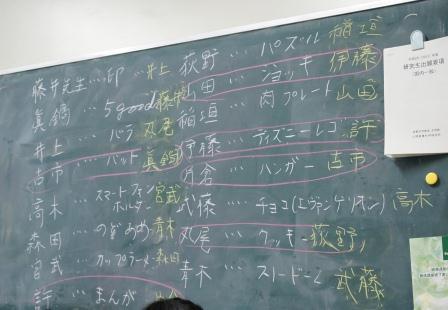 藤井先生…印…井上
眞鍋…5good 藤井
井上…バラ 丸尾
吉市…バット 眞鍋
高木…スマートフォンホルダー 宮武
森田…のどあめ 青木
宮武…カップラーメン 森田
許…まんが
荻野…パズル 稲垣
山田…ジョッキ 伊藤
稲垣…肉プレート 山田
伊藤…ディズニーレゴ 許
片倉…ハンガー 吉市
武藤…チョコ(エヴァンゲリオン) 高木
丸尾…クッキー 荻野
青木…ストロードーム 武藤
研究生出願要項